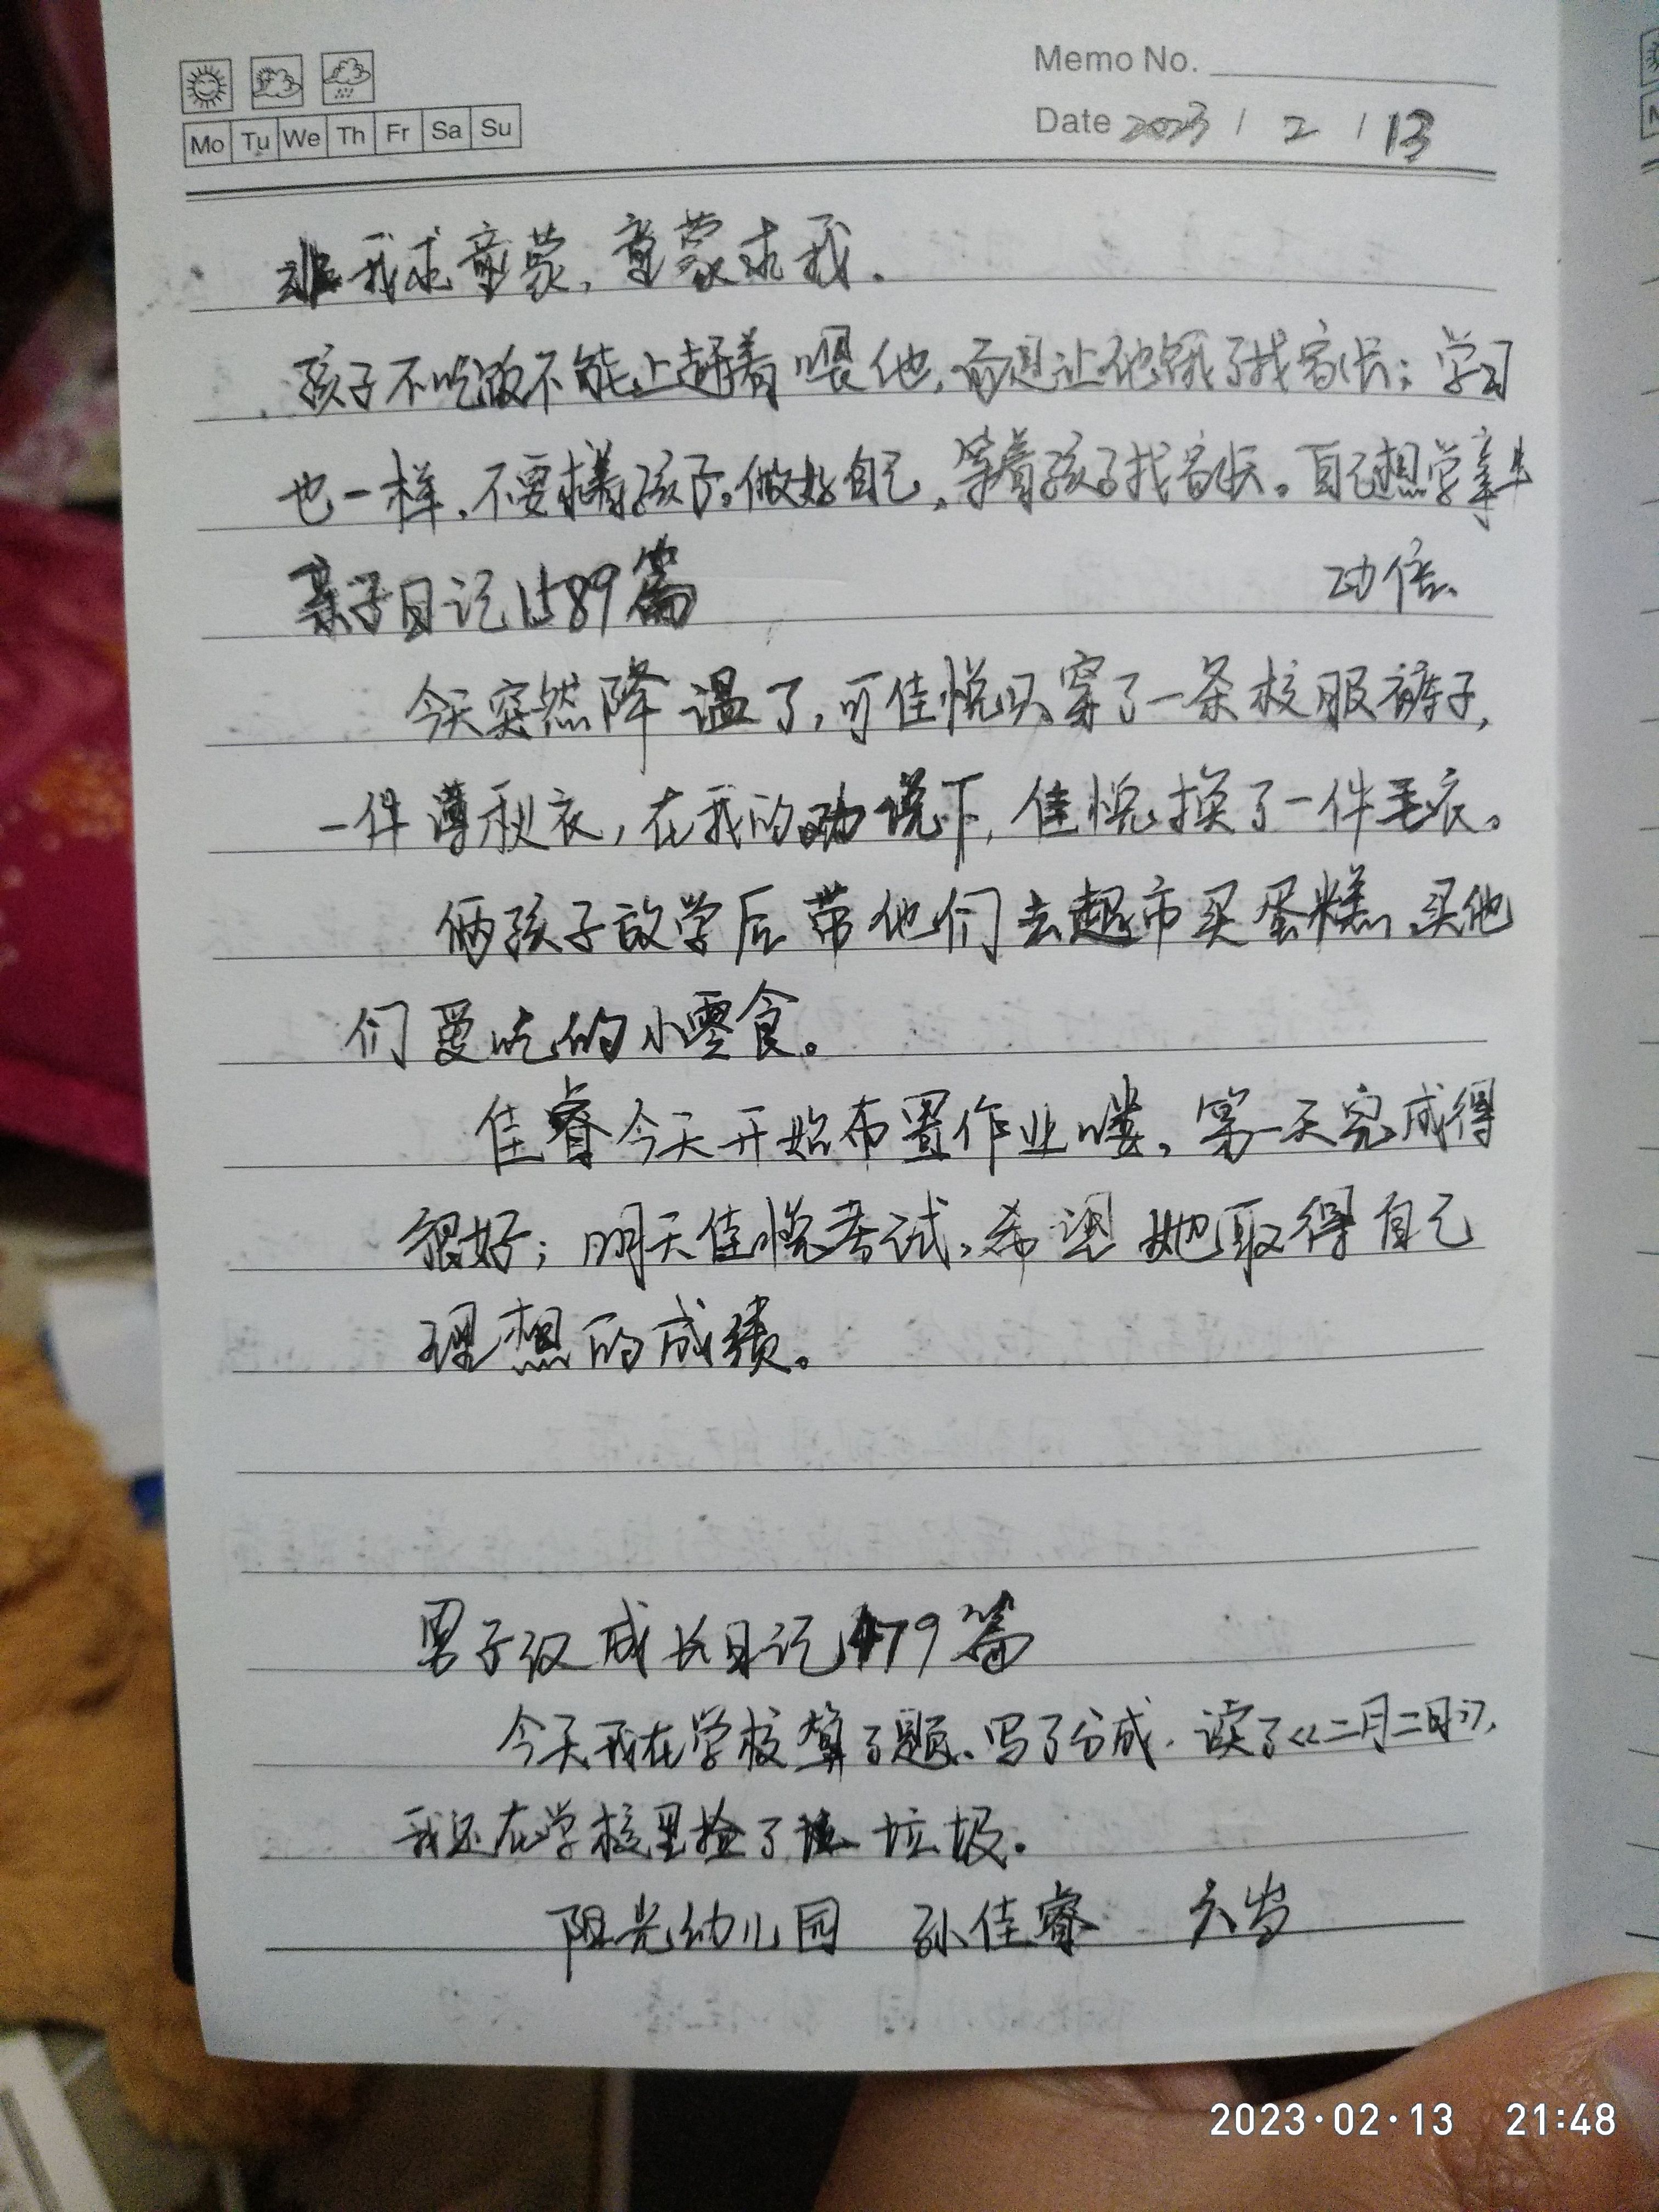 Memo No.
Mo Tu We Th Fr Sa Su
Date 2023 / 2 / 13
非我求童蒙，童蒙求我。
孩子不吃饭不能上赶着喂他，而是让他饿了找家长；学习
也一样，不要撵孩子。做好自己，等着孩子找家长。自己想学事半
功倍。
亲子日记1589篇
今天突然降温了，可佳悦只穿了一条校服裤子，
一件薄秋衣，在我的劝说下，佳悦换了一件毛衣。
俩孩子放学后带他们去超市买蛋糕，买他
们爱吃的小零食。
佳睿今天开始布置作业喽，第一天完成得
很好；明天佳悦考试，希望她取得自己
理想的成绩。
男子汉成长日记179篇
今天我在学校算了题、写了分成、读了《二月二日》，
我还在学校里捡了垃圾。
阳光幼儿园 孙佳睿 六岁
2023·02·13 21:48